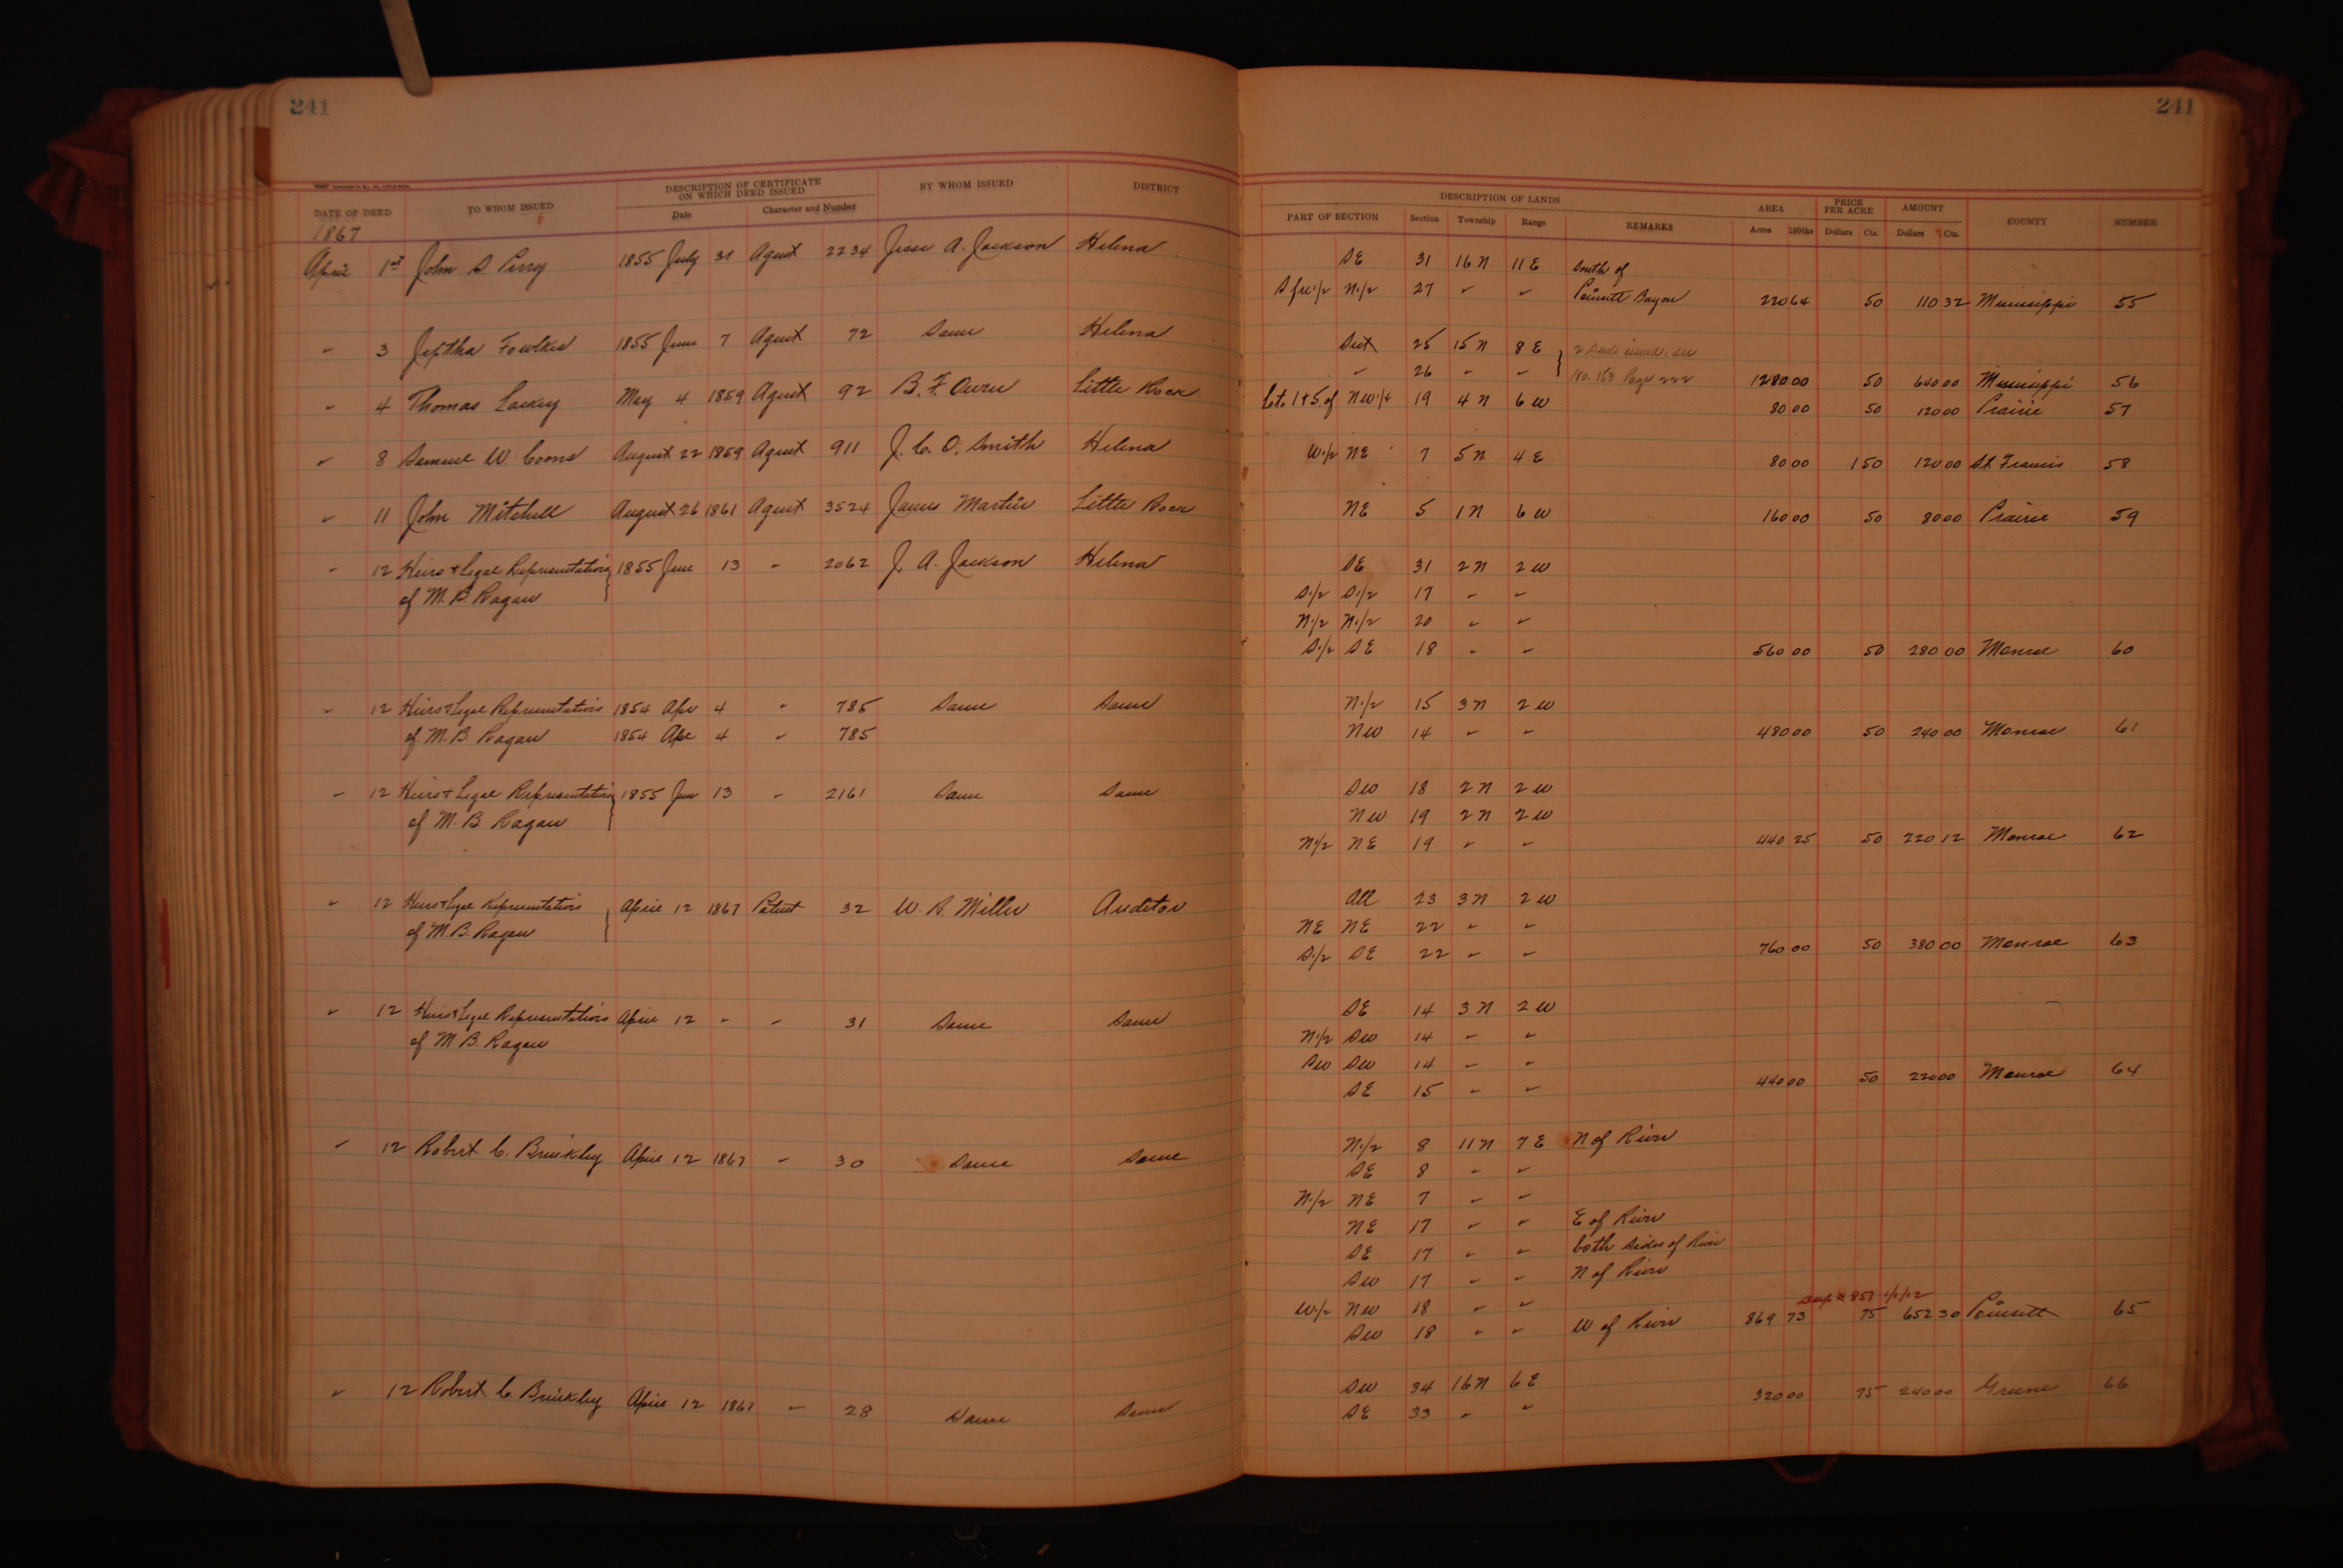 241
DATE OF DEED TO WHOM ISSUED DESCRIPTION OF CERTIFICATE ON WHICH DEED ISSUED BY WHOM ISSUED DISTRICT
Date Character and Number
1867
April 1st John S Perry 1855 July 31 Agent 2234 Jesse A. Jackson Helena
" 3 Jeptha Fowlkes 1855 June 7 Agent 72 Same Helena
" 4 Thomas Lackey May 4 1859 Agent 92 B. F. Owen Little Rock
" 8 Samuel W. Coons August 22 1859 Agent 911 J. C. O. Smith Helena
" 11 John Mitchell August 26 1861 Agent 3524 James Martin Little Rock
" 12 Heirs & Legal Representatives 1855 June 13 " 2062 J. A. Jackson Helena
of M. B. Ragan
" 12 Heirs & Legal Representatives 1854 Apr 4 " 785 Same Same
of M. B. Ragan 1854 Apr 4 " 785
" 12 Heirs & Legal Representatives 1855 Jun 13 " 2161 Same Same
of M. B. Ragan
" 12 Heirs & Legal Representatives April 12 1867 Patent 32 W. R. Miller Auditor
of M. B. Ragan
" 12 Heirs & Legal Representatives April 12 " " 31 Same Same
of M. B. Ragan
" 12 Robert C. Brinkley April 12 1867 " 30 Same Same
" 12 Robert C. Brinkley April 12 1867 " 28 Same Same
241
DESCRIPTION OF LANDS AREA PRICE PER ACRE AMOUNT COUNTY NUMBER
PART OF SECTION Section Township Range REMARKS Acres 100ths Dollars Cts. Dollars Cts.
SE 31 16 N 11 E South of
S fr 1/2 N 1/2 27 " " Poinsett Bayou 220 64 50 110 32 Mississippi 55
Sect 25 15 N 8 E 2 Deeds issued. See
" 26 " " No. 163 Page 222 1280 00 50 640 00 Mississippi 56
Lots 1 & 5 of NW 1/4 19 4 N 6 W 80 00 50 120 00 Prairie 57
W 1/2 NE 7 5 N 4 E 80 00 1 50 120 00 St Francis 58
NE 5 1 N 6 W 160 00 50 80 00 Prairie 59
SE 31 2 N 2 W
S 1/2 S 1/2 17 " "
N 1/2 N 1/2 20 " "
S 1/2 SE 18 " " 560 00 50 280 00 Monroe 60
N 1/2 15 3 N 2 W
NW 14 " " 480 00 50 240 00 Monroe 61
SW 18 2 N 2 W
NW 19 2 N 2 W
N 1/2 NE 19 " " 440 25 50 220 12 Monroe 62
All 23 3 N 2 W
NE NE 22 " "
S 1/2 SE 22 " " 760 00 50 380 00 Monroe 63
SE 14 3 N 2 W
N 1/2 SW 14 " "
SW SW 14 " "
SE 15 " " 440 00 50 220 00 Monroe 64
N 1/2 8 11 N 7 E N of River
SE 8 " "
N 1/2 NE 7 " "
NE 17 " " E of River
SE 17 " " both sides of River
SW 17 " " N of River
W 1/2 NW 18 " "
SW 18 " " W of River 869 73 75 652 30 Poinsett 65
SW 34 16 N 6 E
SE 33 " " 320 00 75 240 00 Greene 66